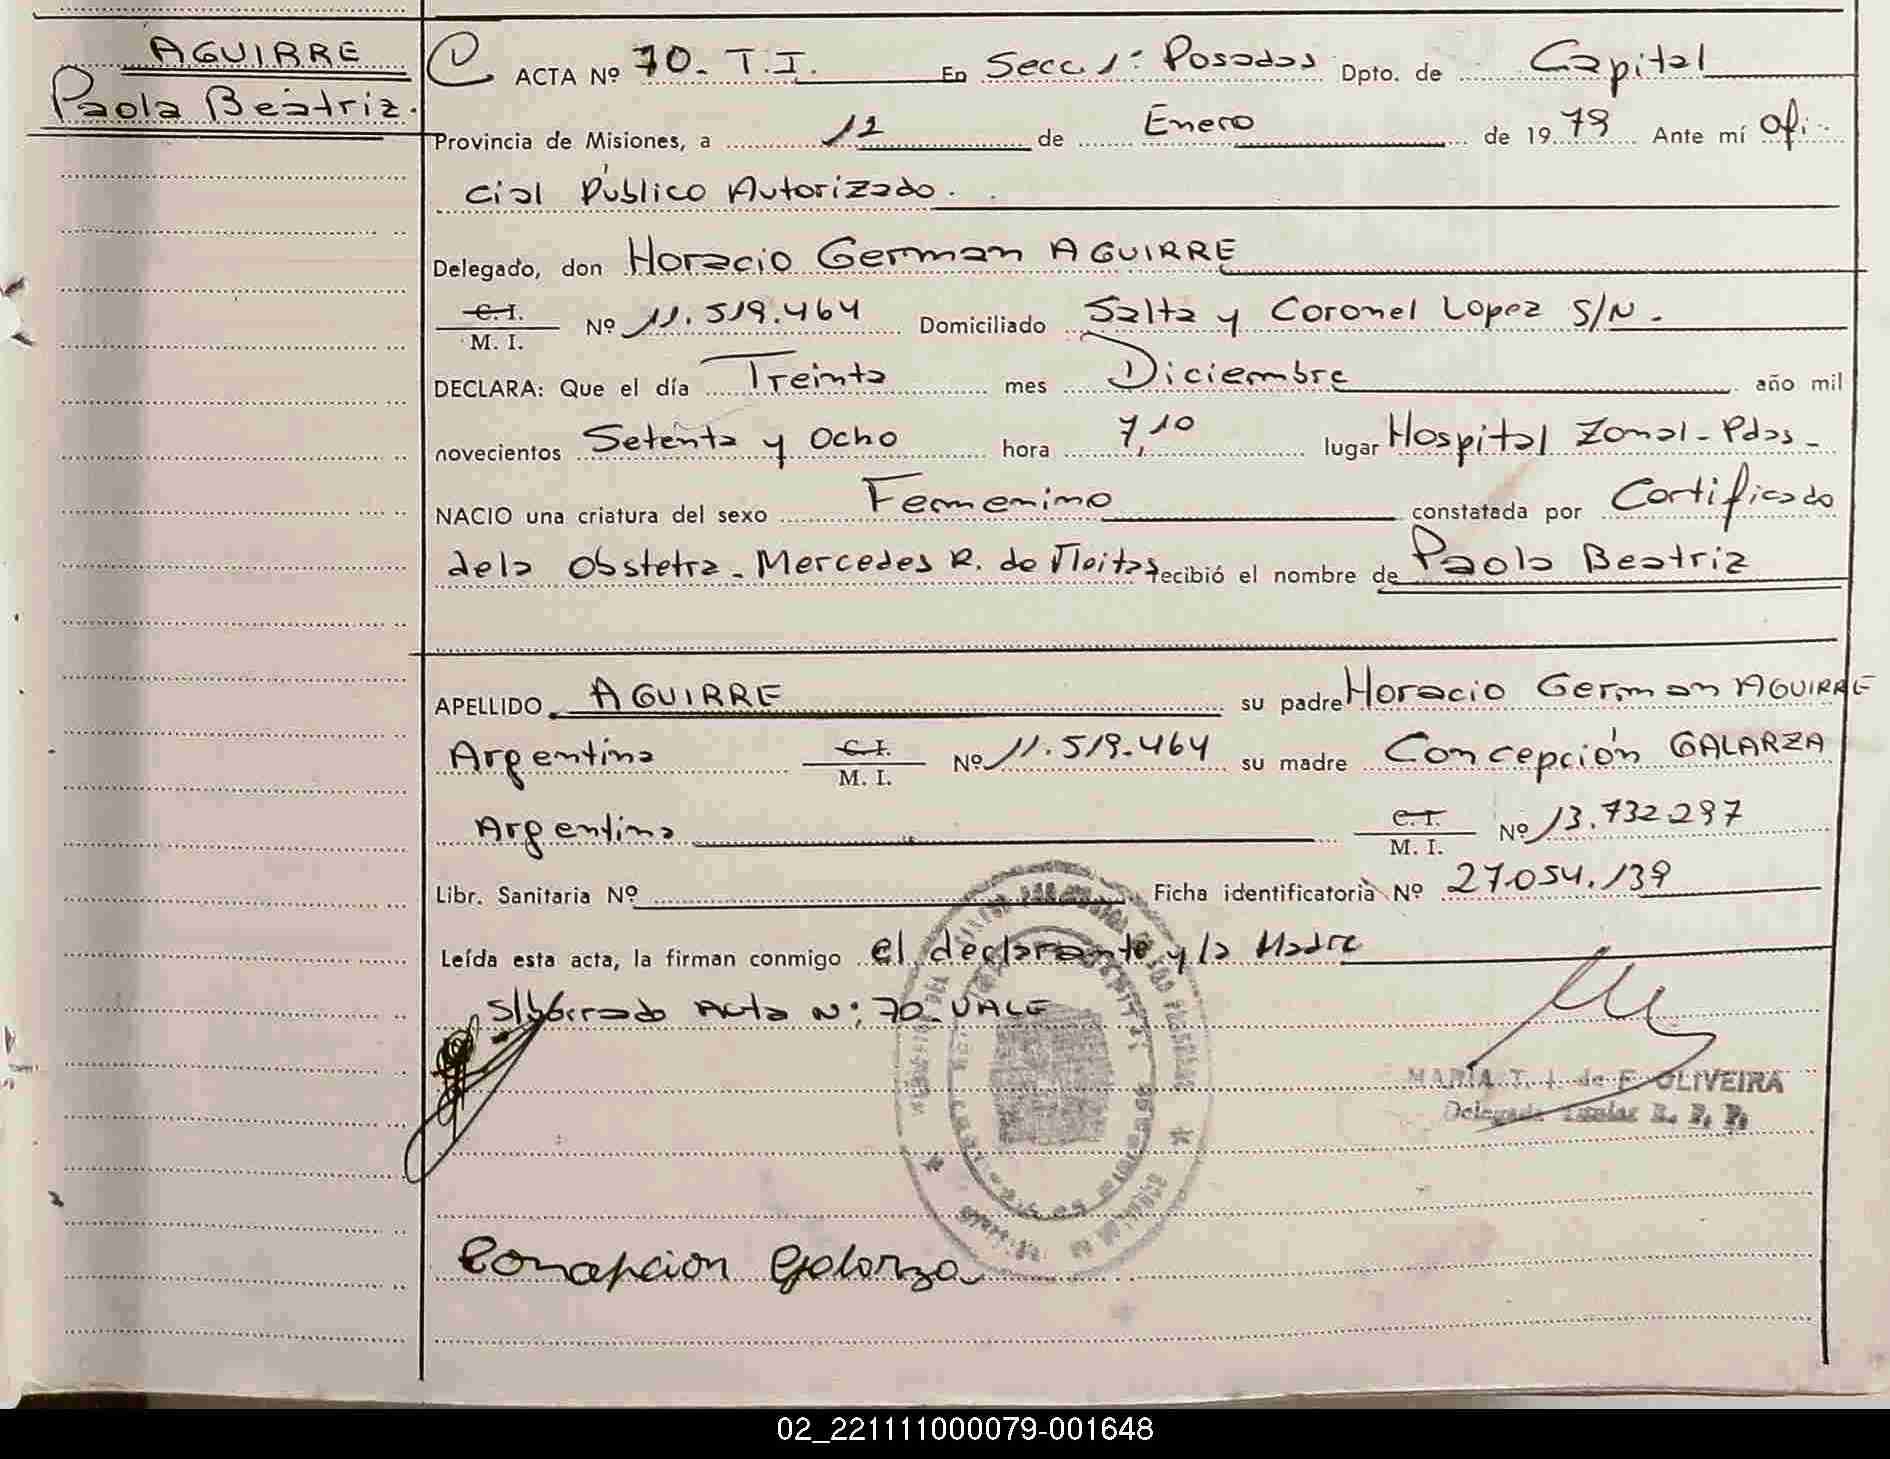 AGUIRRE
Paola Beatriz.
ACTA Nº 70. T.I. En Secc. 1ª Posadas Dpto. de Capital
Provincia de Misiones, a 12 de Enero de 1979 Ante mí Ofi-
cial Público Autorizado.
Delegado, don Horacio German AGUIRRE
C.I.
M. I. Nº 11.519.464 Domiciliado Salta y Coronel Lopez S/N.
DECLARA: Que el día Treinta mes Diciembre año mil
novecientos Setenta y Ocho hora 7,10 lugar Hospital Zonal-Pdas-
NACIO una criatura del sexo Femenino constatada por Certificado
dela Obstetra- Mercedes R. de Fleitas recibió el nombre de Paola Beatriz
APELLIDO AGUIRRE su padre Horacio German AGUIRRE
Argentina C.I. M. I. Nº 11.519.464 su madre Concepción GALARZA
Argentina C.I. M. I. Nº 13.732.297
Libr. Sanitaria Nº Ficha identificatoria Nº 27.054.139
Leída esta acta, la firman conmigo el declarante y la Madre
S/borrado Acta Nº: 70. VALE
MARIA T. de F. OLIVEIRA
Delegada Titular R. P. P.
Concepcion Galarza
02_221111000079-001648